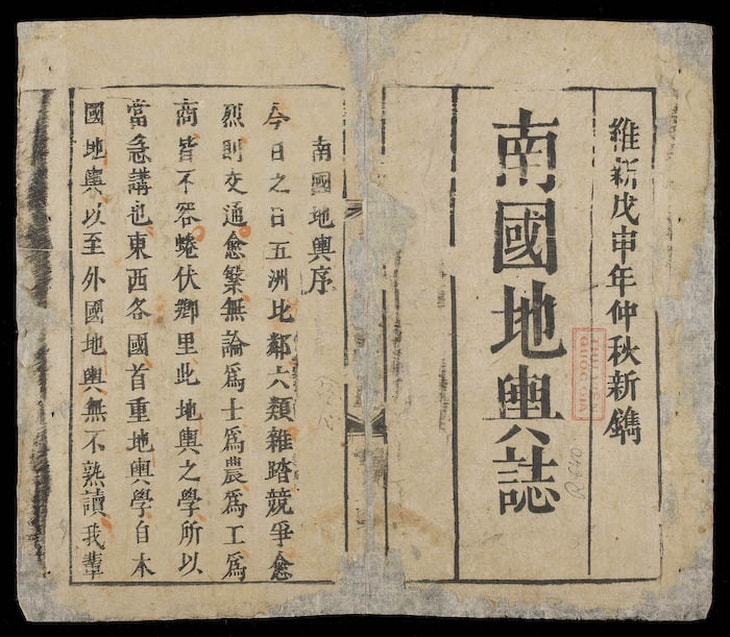 維新戊申年仲秋新鐫
南國地輿誌
THƯ VIỆN
QUỐC GIA
R 640
南國地輿序
今日之日五洲比鄰六類雜踏競爭愈
烈則交通愈繁無論爲士爲農爲工爲
商皆不容蜷伏鄉里此地輿之學所以
當急講也東西各國首重地輿學自本
國地輿以至外國地輿無不熟讀我輩